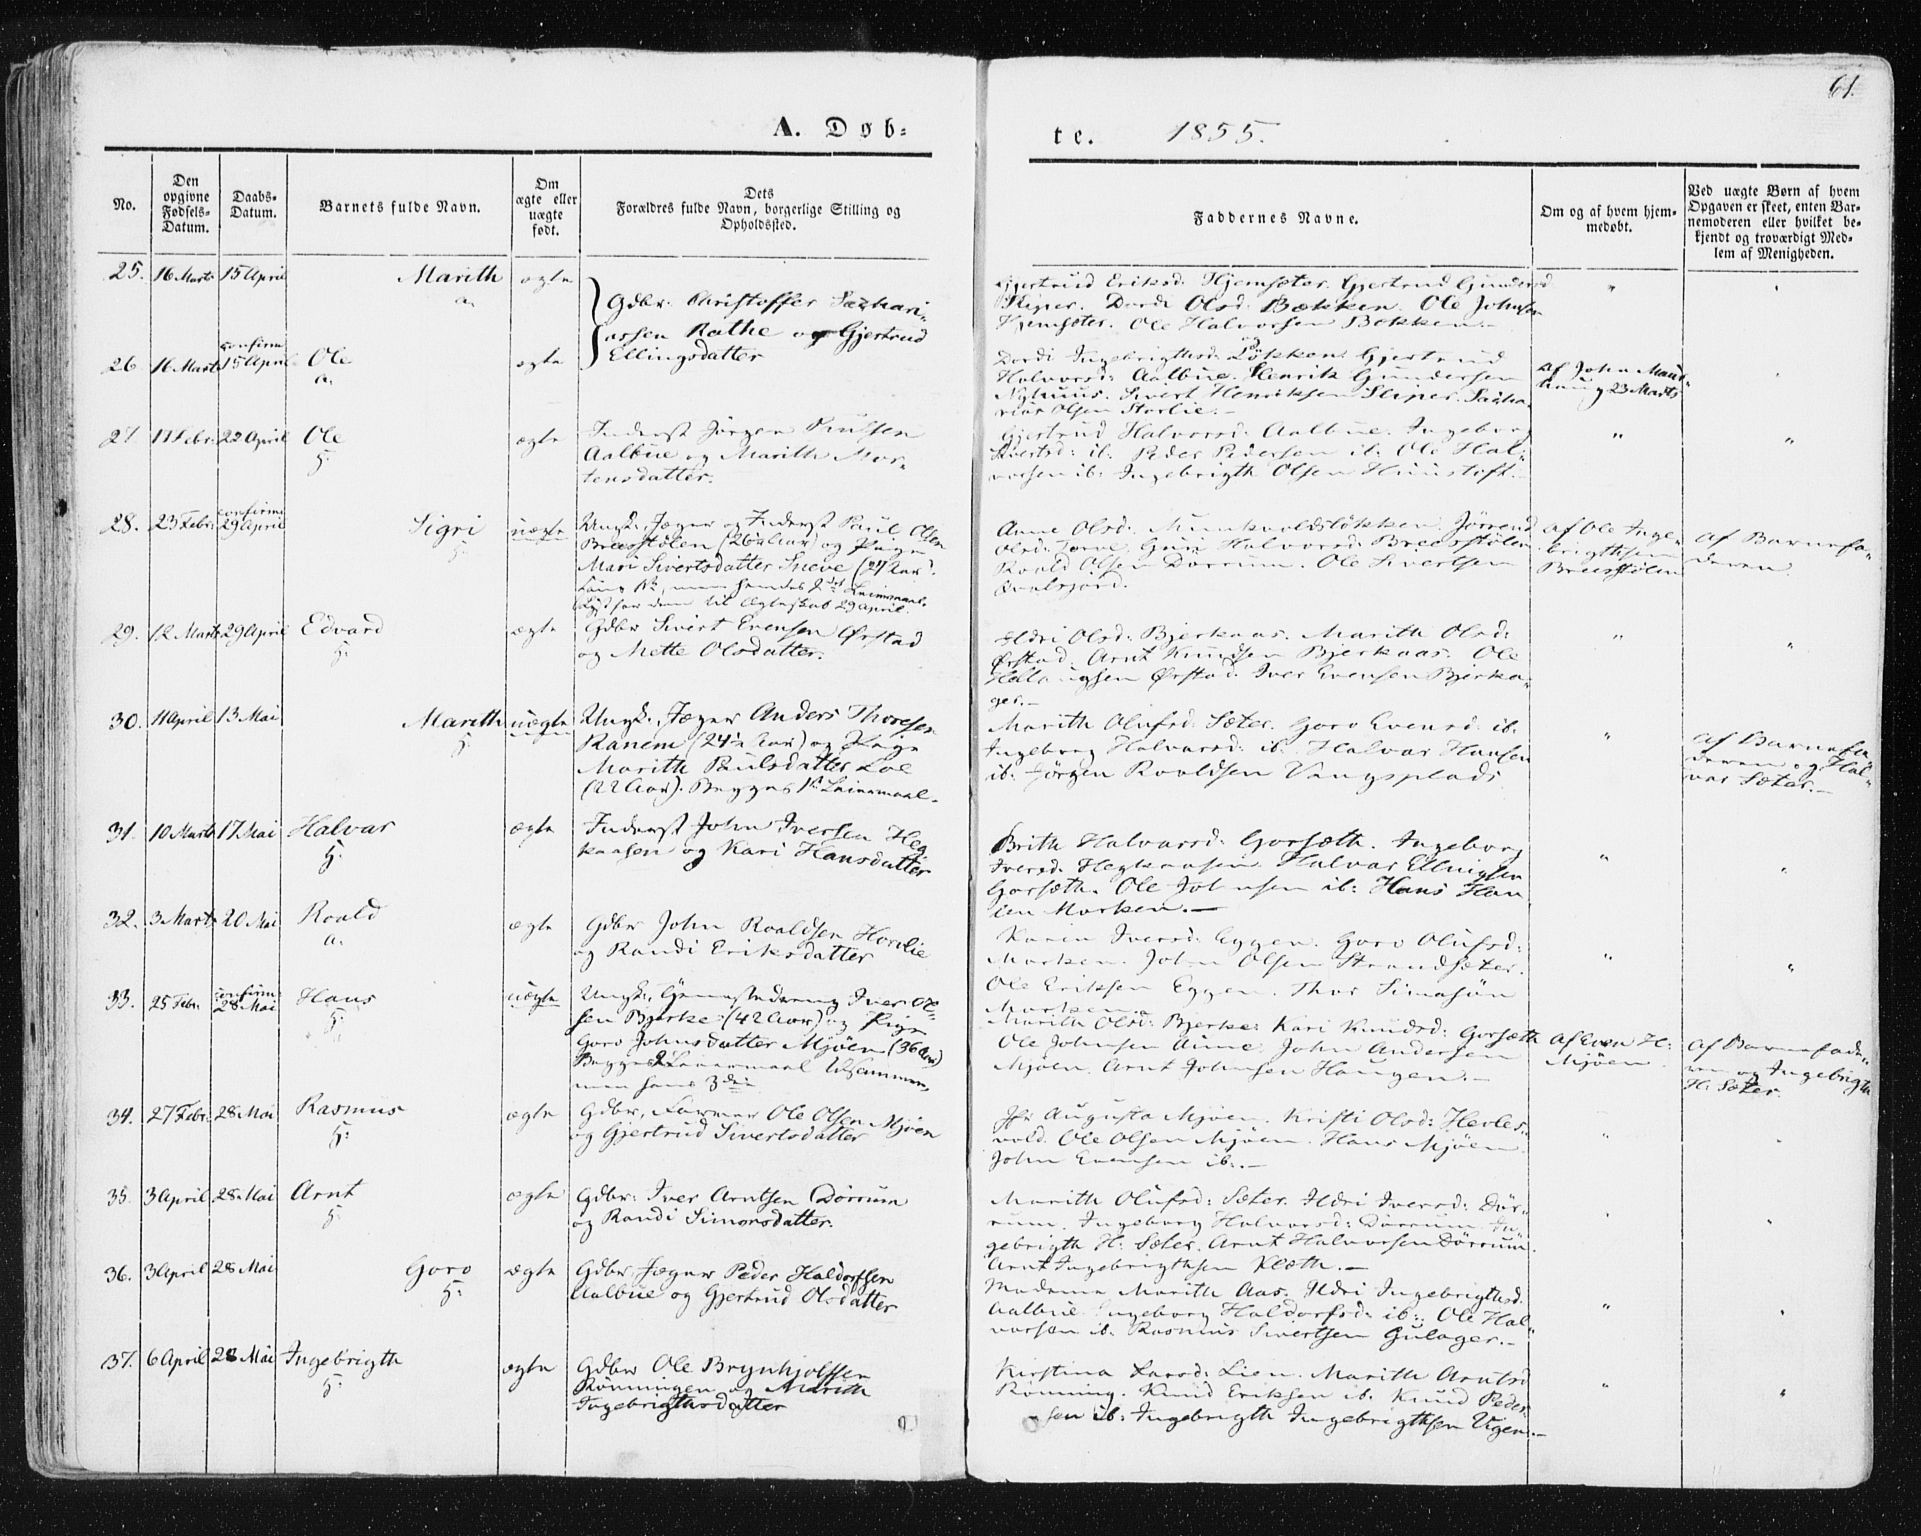 61.
A. Døb-
te. 1855.
No.
Den opgivne Fødsels-Datum.
Daabs-Datum.
Barnets fulde Navn.
Om ægte eller uægte født.
Dets Forældres fulde Navn, borgerlige Stilling og Opholdssted.
Faddernes Navne.
Om og af hvem hjem-medøbt.
Ved uægte Børn af hvem Opgaven er skeet, enten Bar-nemoderen eller hvilket be-kjendt og troværdigt Med-lem af Menigheden.
25. 16 Marts 15 April Marith ægte
a.
Gdbr. Christoffer Zachari-
assen Rathe og Gjertrud
Ellingsdatter
Gjertrud Eriksd. Hjemsæter. Gjertrud Gundersd
Sliper. Dordi Olsd. Bækken. Ole Johnsen
Hjemsæter. Ole Halvorsen Bekken.-
confirm.
26 16 Marts 15 April Ole ægte
a.
Dordi Ingebrigthsd: Løkken. Gjertrud
Halvorsd: Aalbue. Henrik Gundersen
Nyhuus. Sivert Henriksen Sliper. Zacha-
rias Olsen Storlie.-
Af John Maud-
haug 23 Marts
27 17 Febr. 22 April Ole ægte
5.
Inderst Jørgen Poulsen
Aalbue og Marith Mor-
tensdatter.
Gjertrud Halvorsd. Aalbue. Ingeborg
Sivertsd: ib. Peder Pedersen ib. Ole Hal-
vorsen ib: Ingebrigth Olsen
28. 23 Febr. confirm. 29 April Sigri uægte
5
Ungk. Jæger og Inderst Paul Olsen
Breesstølen (26½ Aar) og Pige
Mari Sivertsdatter Sneve (27 Aar).
29 April.
Anne Olsd. Munkvoldsløkken. Jørend
Olsd: Torve. Guri Halvorsd: Breesstølen
Roald Olsen Dørrum. Ole Sivertsen
Af Ole Inge-
brigthsen
Breesstølen
Af Barnefa-
deren.
29. 12 Marts 29 April Edvard ægte
5.
Gdbr Sivert Evensen Ørstad
og Mette Olsdatter.
Ildri Olsd: Bjerkaas. Marith Olsd:
Ørstad. Arnt Knudsen Bjerkaas. Ole
Ørstad. Iver Evensen Bjerka-
30. 11 April 13 Mai Marith uægte
5.
Ungk. Jæger Anders Thoresen
Ranem (24½ Aar) og Pige
Marith Paulsdatter Loe
(22 Aar). Begges 1ste Leiermaal.
Marith Olufsd. Sæter. Goro Evensd. ib.
Ingeborg Halvorsd: ib. Halvor Hansen
ib: Jørgen Roaldsen Vangsplads
Af Barnefa-
deren og Hal-
vor Sæter.-
31. 10 Marts 17 Mai Halvor ægte
5.
Inderst John Iversen Heg
kaasen og Kari Hansdatter
Brith Halvorsd: Gorsæth. Ingeborg
Iversd. Hegkaasen. Halvor Ellingsen
Gorsæth. Ole Johnsen ib: Hans Han
sen Marken.-
32. 3 Marts 20 Mai Roald ægte
a.
Gdbr John Roaldsen Horvlie
og Randi Eriksdatter
Karen Iversd: Eggen. Goro Olufsd:
Marken. John Olsen Strandsæter.
Ole Eriksen Eggen. Thor Simasøn
Marken.
33. 25 Febr. confirm. 28 Mai Hans uægte
5.
Ungk. Iver Ol-
sen Bjerke (42 Aar) og Pige
Goro Johnsdatter Mjøen (36 Aar)
Begges 2. Leiermaal tilsammen,
men hans 3die
Marith Olsd: Bjerke. Kari Knudsd: Gorsæth
Ole Johnsen Aune. John Andersen
Mjøen. Arnt Johnsen Haugen.-
Af Even H:
Mjøen.
Af Barnefade-
ren og Ingebrigth
H. Sæter.
34. 27 Febr. 28 Mai Rasmus ægte
5.
Gdbr, Farmer Ole Olsen Mjøen
og Gjertrud Sivertsdatter
Jfr Augusta Mjøen. Kristi Olsd: Herles-
vold. Ole Olsen Mjøen. Hans Mjøen
John Evensen ib.-
35. 3 April 28 Mai Arnt ægte
5.
Gdbr: Iver Arntsen Dørrum
og Randi Simonsdatter.
Marith Olufsd: Sæter. Ildri Iversd: Dør-
rum. Ingeborg Halvorsd: Dørrum. In-
gebrigth H: Sæter. Arnt Halvorsen Dørrum.
Arnt Ingebrigthsen Kleth.-
36. 3 April 28 Mai Goro ægte
5:
Gdbr. Jæger Peder Haldorsen
Aalbue og Gjertrud Olsdatter
Madame Marith Aas. Ildri Ingebrigthsd.
Aalbue. Ingeborg Haldorsd. ib:. Ole Hal-
vorsen ib. Rasmus Sivertsen Gulager.-
37. 6 April 28 Mai Ingebrigth ægte
5.
Gdbr Ole Brynhjolfsen
Rønningen og Marith
Ingebrigthsdatter
Kirstina Larsd: Lien. Marith Arntsd
Rønning. Knud Eriksen ib. Knud Peder-
sen ib: Ingebrigth Ingebrigthsen Vigen.-